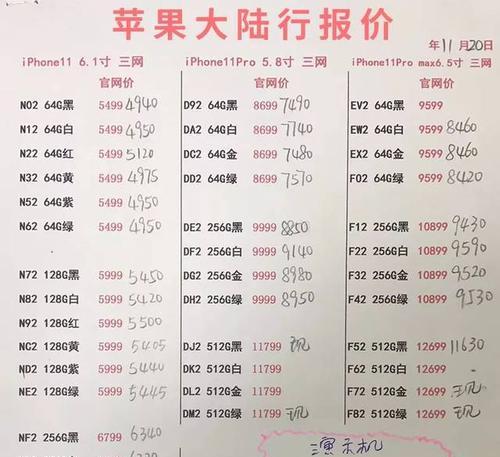 苹果大陆行报价
年11月20日
iPhone11 6.1寸 三网
官网价
N02 64G黑 5499 4940
N12 64G白 5499 4950
N22 64G红 5499 5120
N32 64G黄 5499 4975
N52 64G紫 5499 4950
N62 64G绿 5499 4950
N72 128G黑 5999 5450
N82 128G白 5999 5420
N92 128G红 5999 5500
NC2 128G黄 5999 5405
ND2 128G紫 5999 5440
NE2 128G绿 5999 5445
NF2 256G黑 6799 6340
iPhone11Pro 5.8寸 三网
官网价
D92 64G黑 8699 7490
DA2 64G白 8699 7740
DC2 64G金 8699 7480
DD2 64G绿 8699 7570
DE2 256G黑 9999 8850
DF2 256G白 9999 9140
DG2 256G金 9999 8980
DH2 256G绿 9999 8950
DJ2 512G黑 11799 现
DK2 512G白 11799
DL2 512G金 11799
DM2 512G绿 11799 现
iPhone11Pro max6.5寸 三网
官网价
EV2 64G黑 9599
EW2 64G白 9599 8460
EX2 64G金 9599 8460
F02 64G绿 9599 8420
F12 256G黑 10899 9430
F22 256G白 10899 9590
F32 256G金 10899 9520
F42 256G绿 10899 9530
F52 512G黑 12699 11630
F62 512G白 12699
F72 512G金 12699 现
F82 512G绿 12699 现
演示机